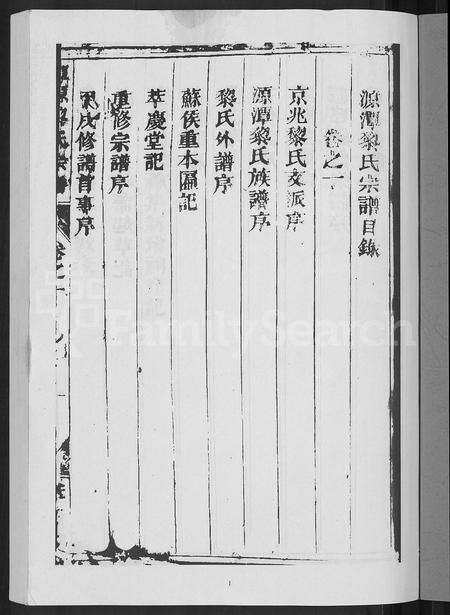 源潭黎氏宗譜目錄
卷之一
京兆黎氏支派序
源潭黎氏族譜序
黎氏外譜序
蘇侯重本匾記
萃慶堂記
重修宗譜序
氏修譜首事序
卷之一
FamilySearch
1